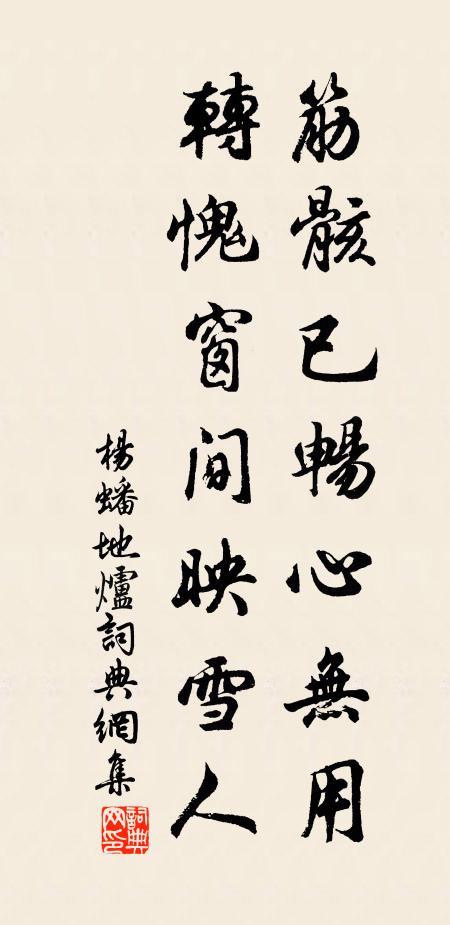 筋骸已暢心無用
轉愧窗間映雪人
楊蟠地爐詞典網集
詞典网印